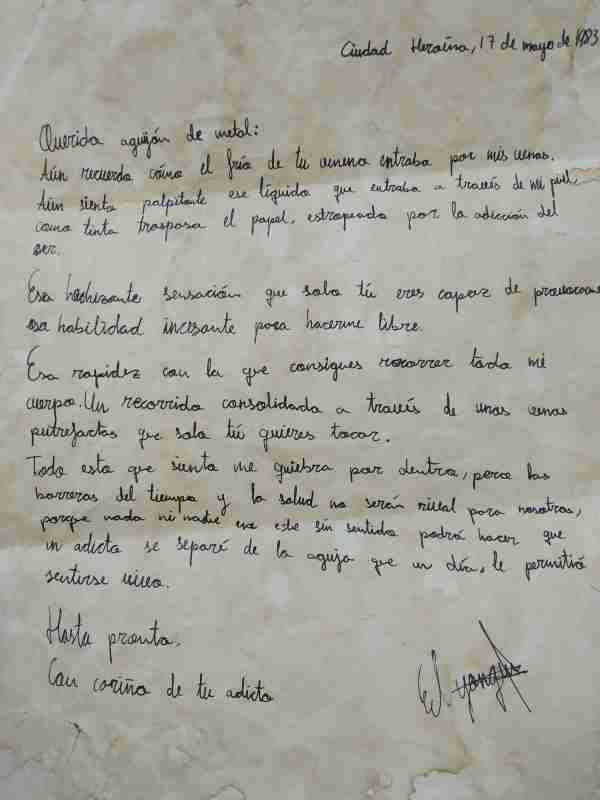 Ciudad Heroína, 17 de mayo de 1983
Querida aguijón de metal:
Aún recuerdo cómo el frío de tu veneno entraba por mis venas.
Aún siento palpitante ese líquido que entraba a través de mi piel,
como tinta traspasa el papel, estropeado por la adicción del
ser.
Esa hechizante sensación que solo tú eres capaz de provocarme
esa habilidad incesante para hacerme libre.
Esa rapidez con la que consigues recorrer todo mi
cuerpo. Un recorrido consolidado a través de unas venas
putrefactas que solo tú quieres tocar.
Todo esto que siento me quiebra por dentro, pero las
barreras del tiempo y la salud no serán rival para nosotros,
porque nada ni nadie en este sin sentido podrá hacer que
un adicto se separé de la aguja que un día, le permitió
sentirse vivo.
Hasta pronto.
Con cariño de tu adicto
El yonqui